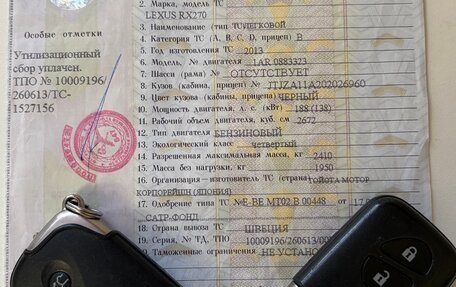 Особые отметки
Утилизационный
сбор уплачен.
ТПО № 10009196/
260613/ТС-
1527156
2. Марка, модель ТС
LEXUS RX270
3. Наименование (тип ТС) ЛЕГКОВОЙ
4. Категория ТС (А, В, С, D, прицеп) B
5. Год изготовления ТС 2013
6. Модель, № двигателя 1AR 0883323
7. Шасси (рама) № ОТСУТСТВУЕТ
8. Кузов (кабина, прицеп) № JTJZA11A202026960
9. Цвет кузова (кабины, прицепа) ЧЕРНЫЙ
10. Мощность двигателя, л. с. (кВт) 188 (138)
11. Рабочий объем двигателя, куб. см 2672
12. Тип двигателя БЕНЗИНОВЫЙ
13. Экологический класс четвертый
14. Разрешенная максимальная масса, кг 2410
15. Масса без нагрузки, кг 1950
16. Организация—изготовитель ТС (страна) ТОЙОТА МОТОР
КОРПОРЕЙШН (ЯПОНИЯ)
17. Одобрение типа ТС № E-BE.MT02.B.00448 от 17.0
САТР-ФОНД
18. Страна вывоза ТС ШВЕЦИЯ
19. Серия, № ТД, ТПО 10009196/260613/00
20. Таможенные ограничения НЕ УСТАНО